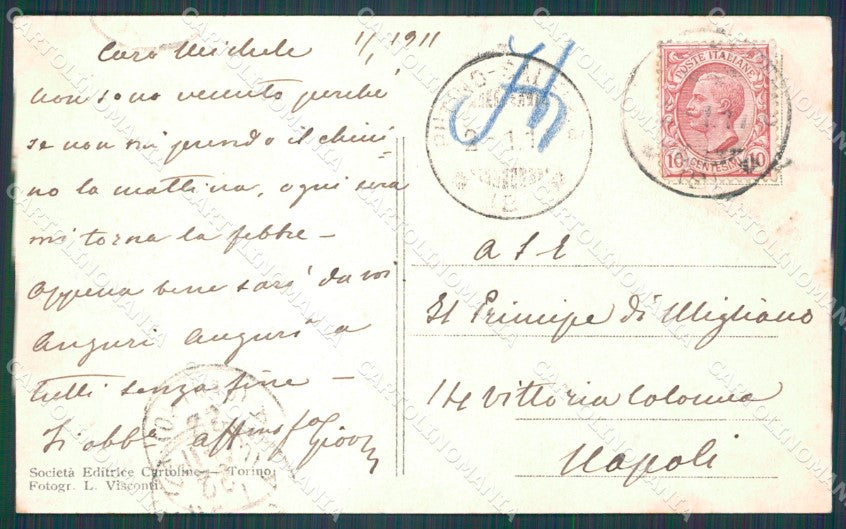 Caro Michele 1/1 1911
non sono venuto perché
se non mi prendo il chini-
no la mattina, ogni sera
mi torna la febbre –
Appena bene sarò da voi
Auguri Auguri a
tutti senza fine –
affmo
Società Editrice Cartoline – Torino
Fotogr. L. Visconti.
POSTE ITALIANE
10 CENTESIMI 10
A S E
Il Principe di Migliano
14 Vittoria Colonna
Napoli
CARTOLINOMANIA